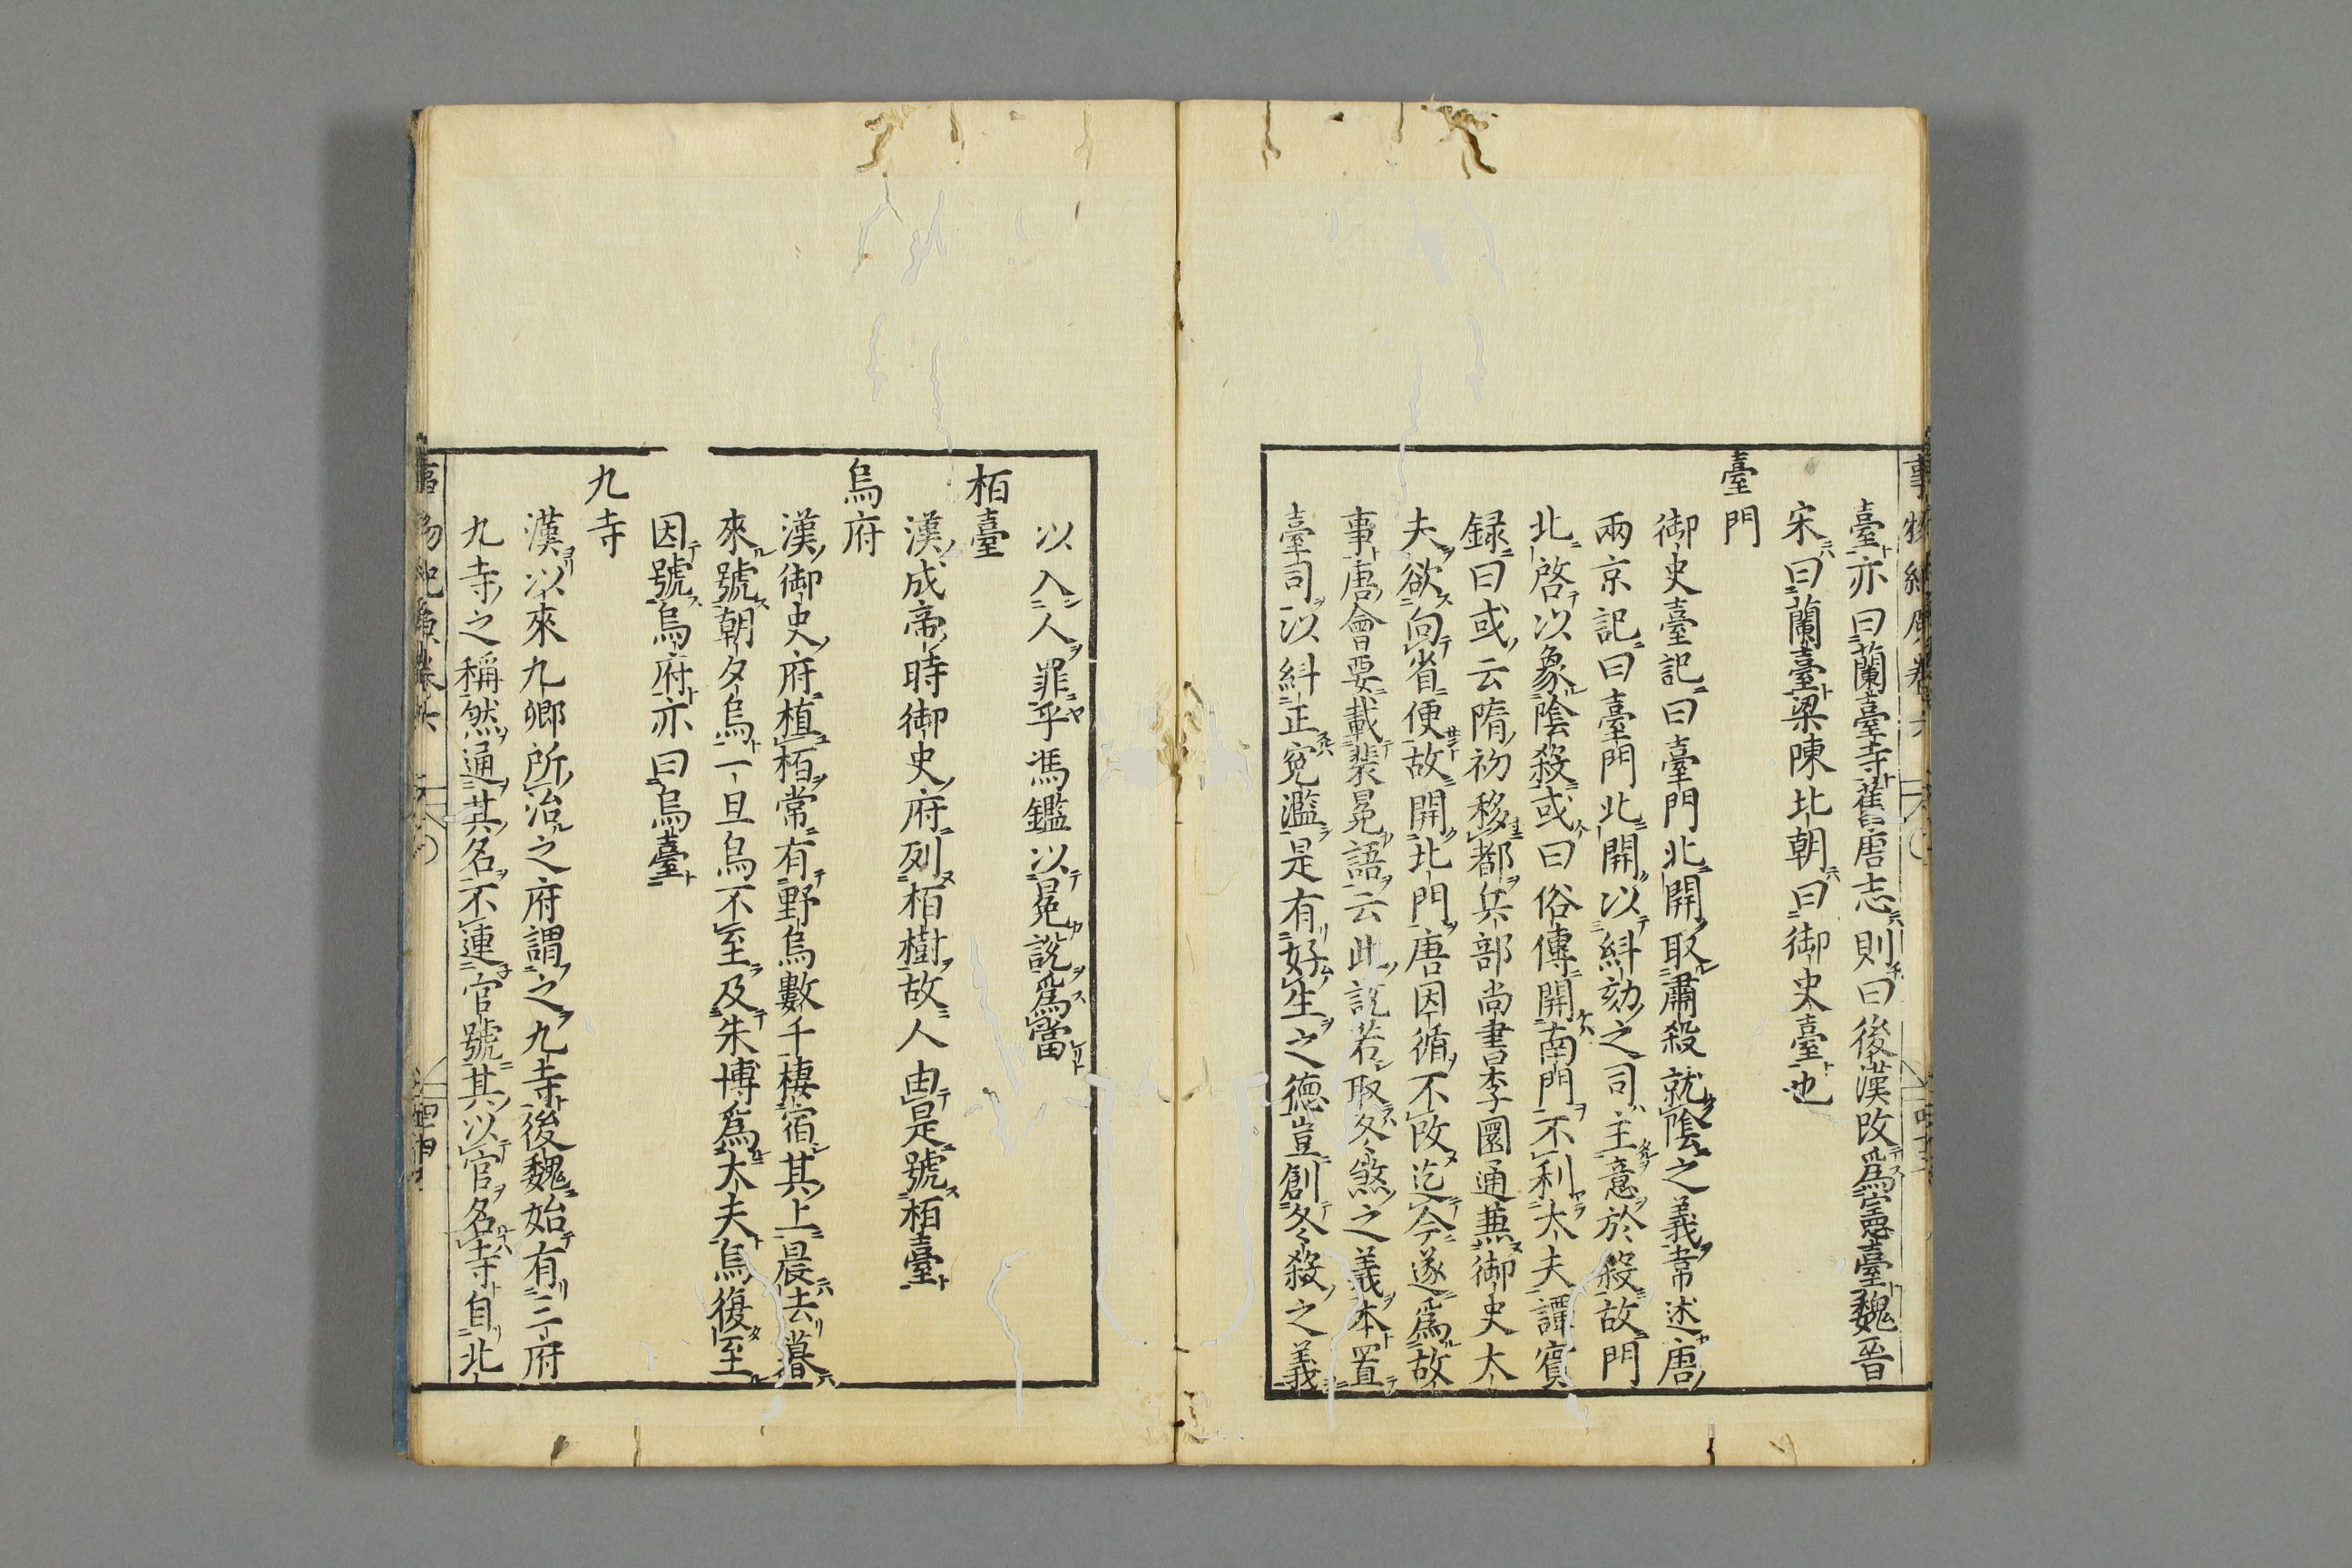 臺亦曰蘭臺寺舊唐志則曰後漢改爲憲臺魏晉
宋曰蘭臺梁陳北朝曰御史臺也
臺門
御史臺記曰臺門北開取肅殺就陰之義韋述唐
兩京記曰臺門北開以糾劾之司主意於殺故門
北啓以象陰殺或曰俗傳開南門不利太夫譚賓
録曰或云隋初移都兵部尚書李圓通兼御史太
夫欲向省便故開北門唐因循不改迄今遂爲故
事唐會要載裴冕語云此說若取冬煞之義本置
臺司以糾正寃濫是有好生之德豈創冬殺之義
以入人罪乎馮鑑以冕說爲當
栢臺
漢成帝時御史府列栢樹故人由是號栢臺
烏府
漢御史府植栢常有野烏數千棲宿其上晨去暮
來號朝夕烏一旦烏不至及朱博爲太夫烏復至
因號烏府亦曰烏臺
九寺
漢以來九卿所治之府謂之九寺後魏始有三府
九寺之稱然通其名不連官號其以官名寺自北